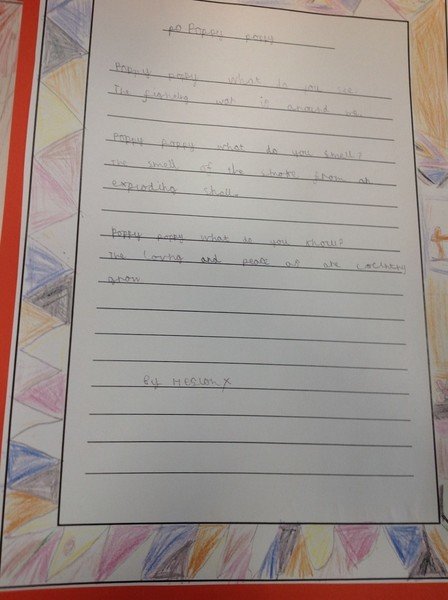 po Poppy poppy
Poppy poppy what do you see.
The fighting war is around us.
Poppy poppy what do you smell?
The smell of the smoke from an
exploding shell.
Poppy poppy what do you know?
The loving and peace as are
grow
By